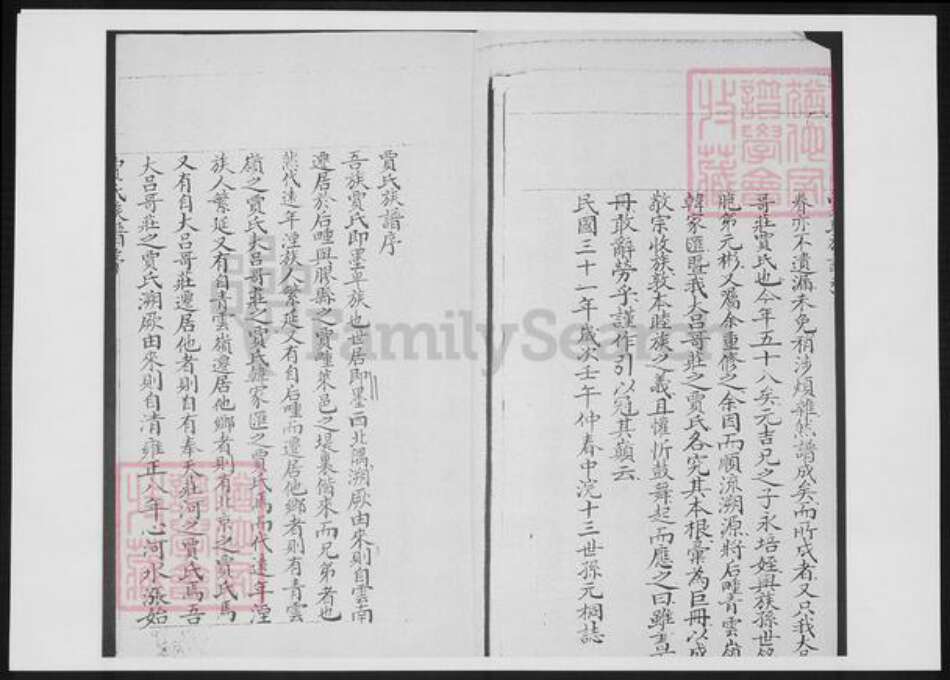 眷亦不遺漏未免稍涉煩雜然譜成矣而所成者又只我大呂
哥莊賈氏也今年五十八矣元吉兄之子永培姪與族孫世
胞弟元彬又囑余重修之余因而順流溯源將后疃青雲嶺
韓家匯暨我大呂哥莊之賈氏各究其本根彙為巨冊以成
敬宗收族敦本睦族之義且懽忻鼓舞起而應之曰雖
冊敢辭勞乎謹作引以冠其巔云
民國三十一年歲次壬午仲春中浣十三世孫元桐誌
賈氏族譜序
吾族賈氏即墨阜族也世居即墨西北隅溯厥由來則自雲南
遷居於后疃與膠縣之賈疃萊邑之堤裏偕來而兄弟者也
然代遠年湮族人繁延又有自后疃而遷居他鄉者則有青雲
嶺之賈氏大呂哥莊之賈氏韓家匯之賈氏焉而代遠年湮
族人繁延又有自青雲嶺遷居他鄉者則有北京之賈氏焉
又有自大呂哥莊遷居他者則自有奉天莊河之賈氏焉吾
大呂哥莊之賈氏溯厥由來則自清雍正八年心河水漲始
賈氏族譜序
譜學會
收藏
FamilySearch